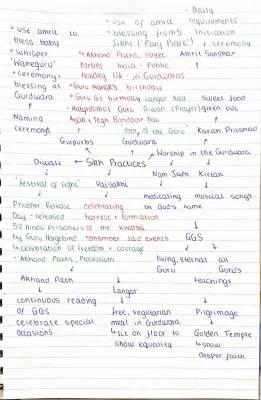 - Daily
• use of amrit requirements
• use amrit to • blessing from 5 Initiation
bless baby Sikhs (Panj Piare) + ceremony
• whisper ↳ Akhand Paths, street Amrit Sanskar
'Waheguru' Parties India - Public
• ceremony + holiday UK - in Gurdwaras
blessing at • Guru Nanak's birthday
Gurdwara • Guru GS birthday Langar hall Sweet food
Naming Diwan (Prayer) given out
ceremony hall
'door of the Guru' Karah Prashad
Gurpurbs Gurdwara
Worship in the Gurdwara
Diwali ← Sikh Practices
Nam Japna Kirtan
'festival of light' Vaisakhi
meditating musical songs
Prisoner Release celebrating on God's name
Day - released harvest + formation
52 Hindu prisoners of the Khalsa
by Guru Hargobind remember sad events GGS
↳ celebration of freedom + courage
- Akhand Paths, Processions living, eternal all
Guru Guru's
Akhand Path teachings
Langar
continuous reading
of GGS free, vegetarian Pilgrimage
celebrate special meal in Gurdwara
occasions ↳ sit on floor to Golden Temple
show equality ↳ show
deeper faith